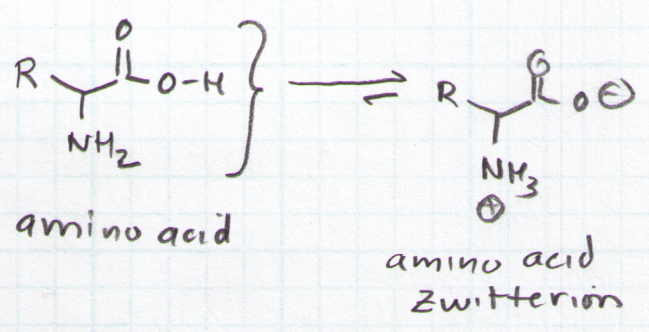 O
R O-H
NH2
amino acid
O
R O ⊖
NH3
⊕
amino acid
zwitterion